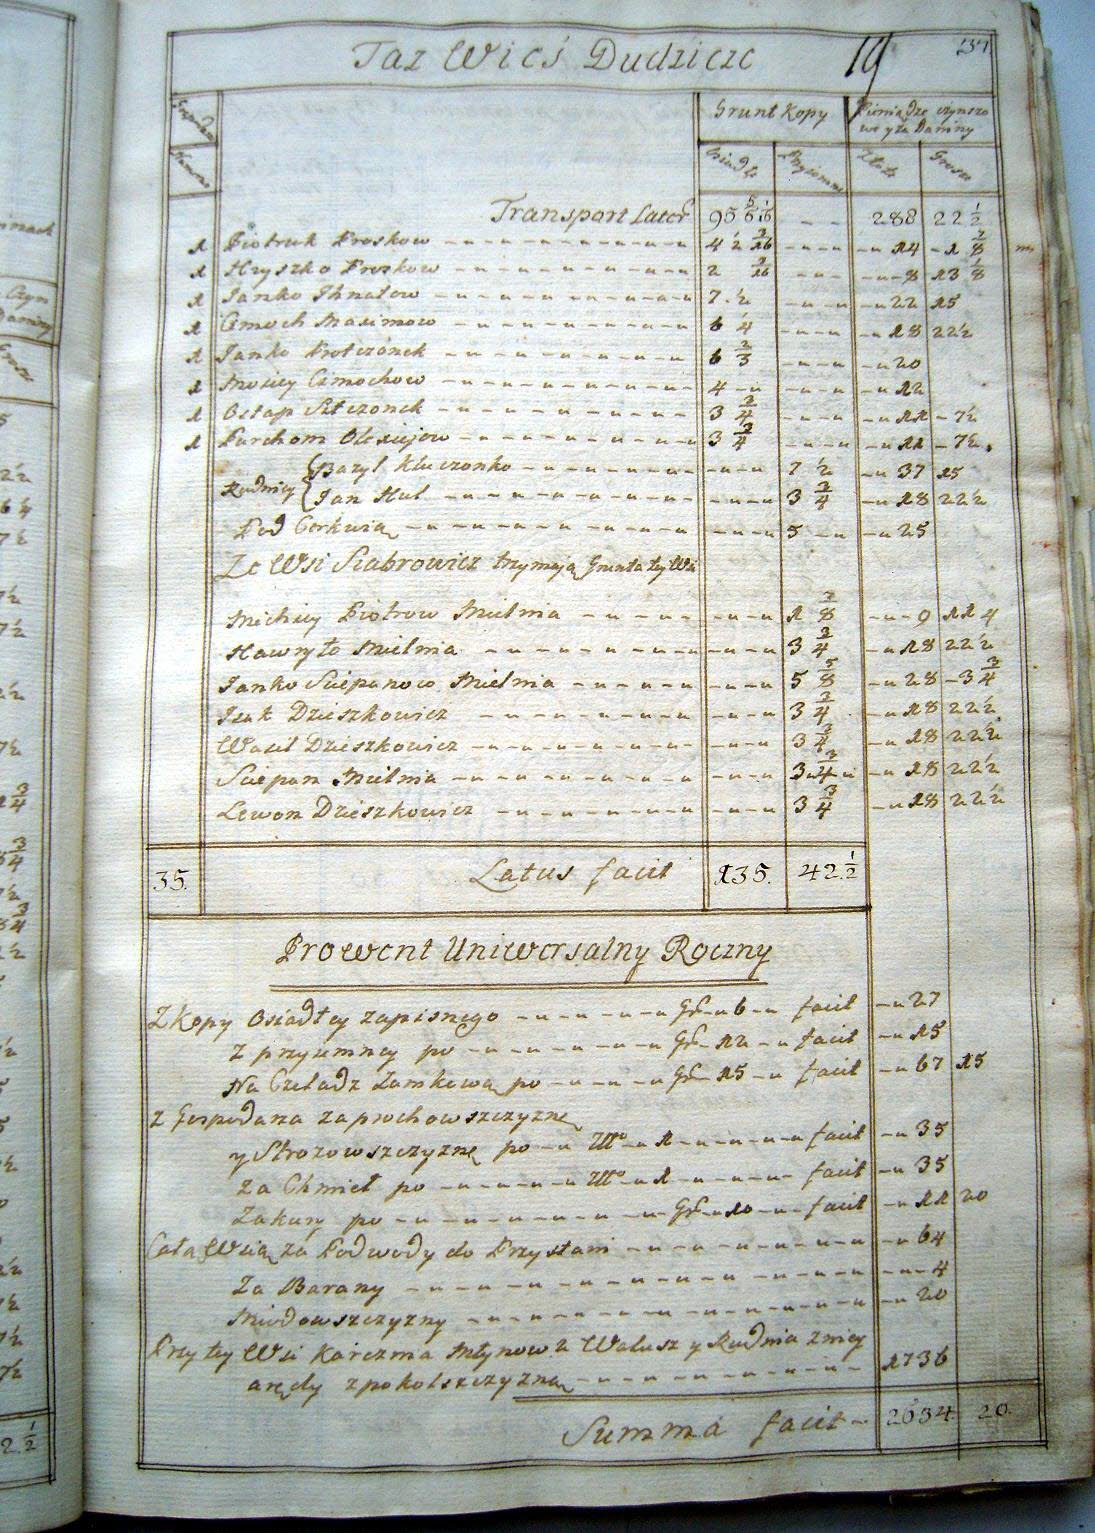 Taz Wieś Dudzicze 19
Grunt Kopy Pieniądze czynszo
we y za Daniny
Osiadłe Przyiemne Złote Grosze
Transport Later 95 5/6 1/16 - - 288 22 1/2
1 Piotruk Proskow 4 1/2 3/16 14 1 7/8
1 Hryszko Proskow 2 3/16 8 13 1/8
1 Janko Ihnatow 7 1/2 22 15
1 Cimoch Maximow 6 1/4 18 22 1/2
1 Janko Protczonek 6 2/3 20
1 Mosiey Cimochow 4 12
1 Ostap Sztczonek 3 3/4 11 7 1/2
1 Parchom Olesiejow 3 3/4 11 7 1/2
Rudnicy Bazyl Kluczonko 7 1/2 37 15
Jan Hut 3 3/4 18 22 1/2
Pod Cerkwią 5 25
Ze Wsi Siabrowicz trzymaią Grunta tey Wsi
Michiey Piotrow Mielnia 1 7/8 9 11 4
Hawryło Mielnia 3 3/4 18 22 1/2
Janko Sciepanow Mielnia 5 5/8 28 3 3/4
Isak Dzieszkowicz 3 3/4 18 22 1/2
Wasil Dzieszkowicz 3 3/4 18 22 1/2
Sciepan Mielnia 3 3/4 18 22 1/2
Lewon Dzieszkowicz 3 3/4 18 22 1/2
35. Latus facit 135. 42 1/2
Prowent Uniwersalny Roczny
Z Kopy Osiadłey zapisnego Gr 6 facit 27
z przyiemney po Gr 12 facit 15
Na Czeladz Zamkową po Gr 15 facit 67 15
z Gospodarza za prochowszczyznę
y Strozowszczyznę po Złło 1 facit 35
Za Chmiel po Złło 1 facit 35
Za kury po Gr 10 facit 11 20
Całą Wsią za Podwody do Przystani 64
Za Barany 4
Miodowszczyzny 20
Przy tey Wsi Karczma Młynow 2 Walusz y Rudnia z niey
arędy z pokolszczyzną 1736
Summa facit 2634 20.